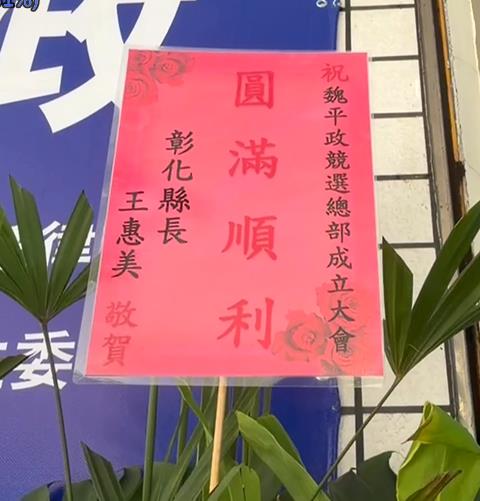 祝魏平政競選總部成立大會
圓滿順利
彰化縣長
王惠美 敬賀
政
律
委